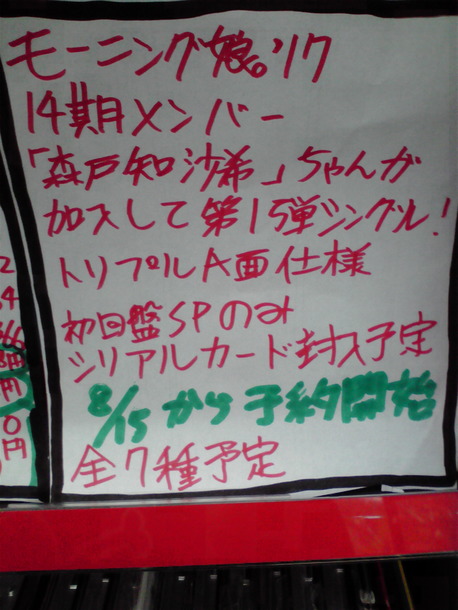 モーニング娘。'17
14期メンバー
「森戸知沙希」ちゃんが
加入して第1弾シングル!
トリプルA面仕様
初回盤SPのみ
シリアルカード封入予定
8/15から予約開始
全7種予定